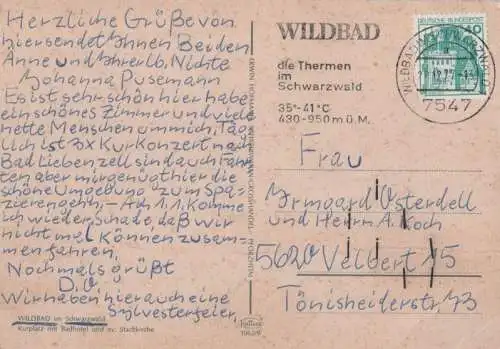 Herzliche Grüße von
hier sendet Ihnen Beiden
Anne und Ihre lb. Nichte
Johanna Pusemann
Es ist sehr schön hier habe
ein schönes Zimmer und viele
nette Menschen um mich, Täg-
lich ist 3x Kur Konzert nach
Bad Liebenzell sind auch Fahr-
ten aber mir genügt hier die
schöne Umgebung zum Spa-
zierengehn, - Am 1.1. komme
ich wieder Schade daß wir
nicht mal können zusam-
menfahren.
Nochmals grüßt
D.O
Wir haben hier auch eine
Sylvesterfeier,
WILDBAD im Schwarzwald
Kurplatz mit Badhotel und ev. Stadtkirche
WILDBAD
die Thermen
im
Schwarzwald
35°-41°C
430-950 m ü. M.
DEUTSCHE BUNDESPOST
40
7547
Frau
Irmgard Osterdell
und Herrn A. Koch
5620 Velbert 15
Tönisheiderstr, 73